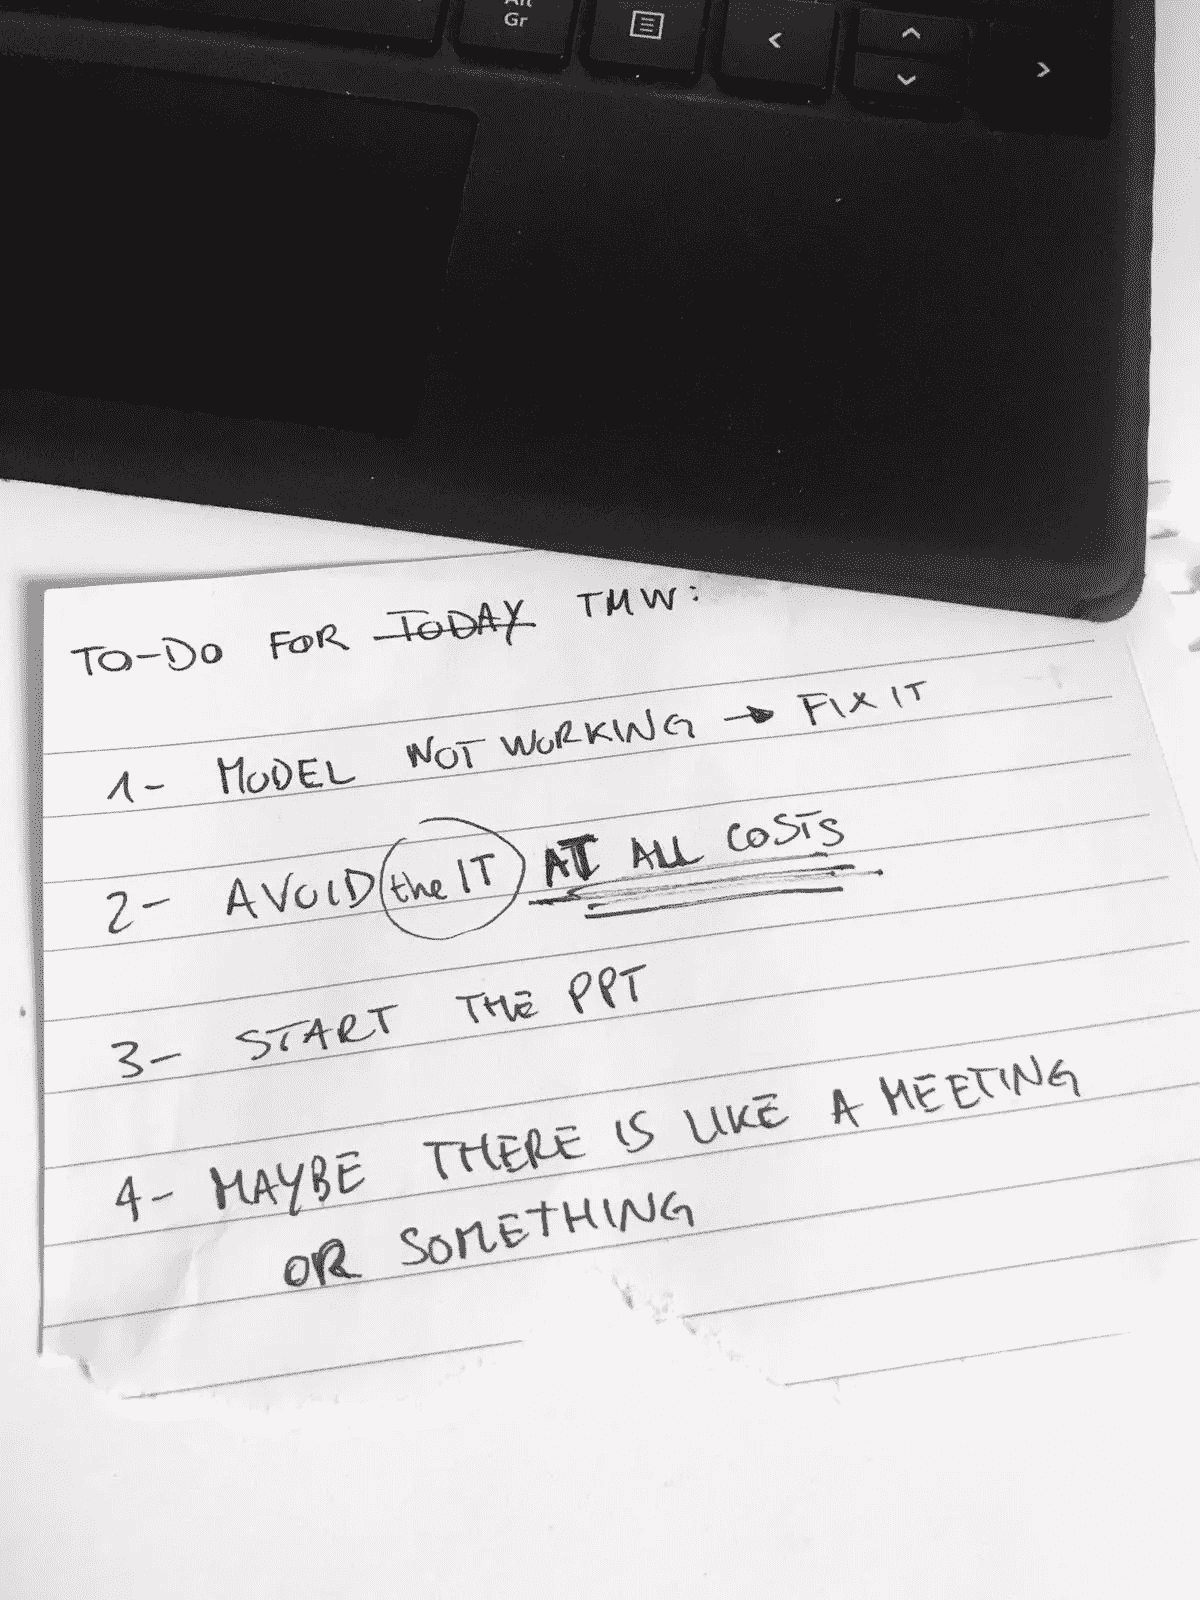 Alt
Gr
TO-DO FOR TODAY TMW:
1- MODEL NOT WORKING → FIX IT
2- AVOID the IT AT ALL COSTS
3- START THE PPT
4- MAYBE THERE IS LIKE A MEETING
OR SOMETHING